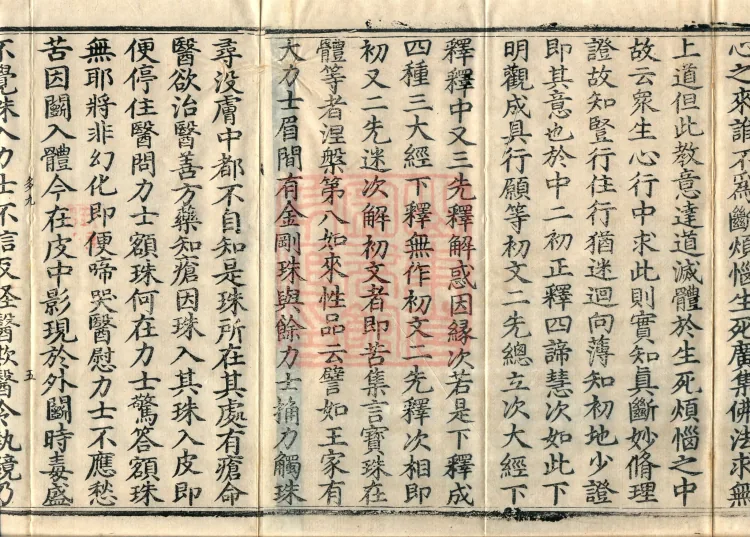 心之來詣不爲斷煩惱生死廣集佛法求無
上道但此教意達道滅體於生死煩惱之中
故云衆生心行中求此則實知眞斷妙脩理
證故知豎行住行猶迷迴向薄知初地少證
即其意也於中二初正釋四諦慧次如此下
明觀成具行願等初文二先總立次大經下
釋釋中又三先釋解惑因緣次若是下釋成
四種三大經下釋無作初文二先釋次相即
初又二先迷次解初文者即苦集言寶珠在
體等者涅槃第八如來性品云譬如王家有
大力士眉間有金剛珠與餘力士捔力觸珠
尋没膚中都不自知是珠所在其處有瘡命
醫欲治醫善方藥知瘡因珠入其珠入皮即
便停住醫問力士額珠何在力士驚答額珠
無耶將非幻化即便啼哭醫慰力士不應愁
苦因鬭入體今在皮中影現於外鬭時毒盛
多九
五
不覺珠入力士不信反怪醫欺醫令執鏡乃